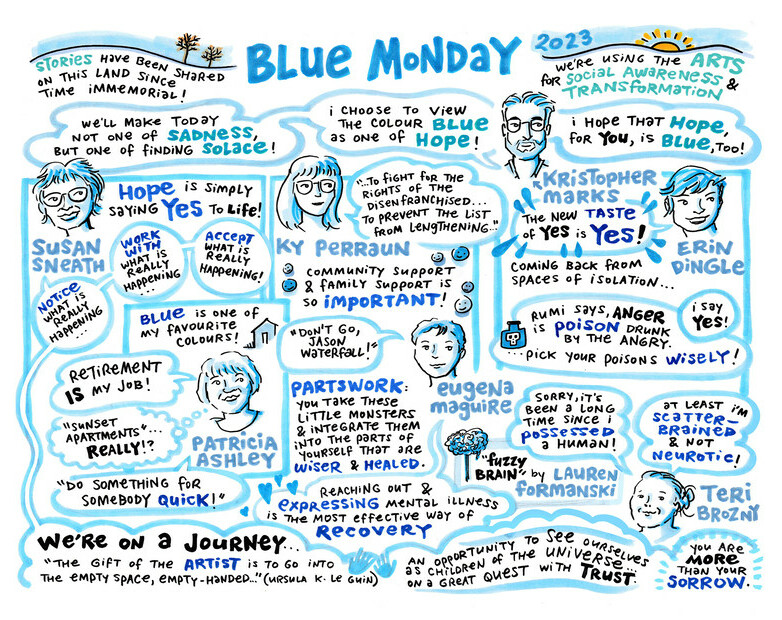 BLUE MONDAY
2023
STORIES HAVE BEEN SHARED
ON THIS LAND SINCE
TIME IMMEMORIAL!
WE'RE USING THE ARTS
FOR SOCIAL AWARENESS &
TRANSFORMATION
WE'LL MAKE TODAY
NOT ONE OF SADNESS,
BUT ONE OF FINDING SOLACE!
I CHOOSE TO VIEW
THE COLOUR BLUE
AS ONE OF HOPE!
I HOPE THAT HOPE,
FOR YOU, IS BLUE, TOO!
KRISTOPHER
MARKS
HOPE IS SIMPLY
SAYING YES TO LIFE!
SUSAN
SNEATH
NOTICE
WHAT IS
REALLY
HAPPENING
...
WORK
WITH
WHAT IS
REALLY
HAPPENING
...
ACCEPT
WHAT IS
REALLY
HAPPENING!
"...TO FIGHT FOR THE
RIGHTS OF THE
DISENFRANCHISED...
TO PREVENT THE LIST
FROM LENGTHENING..."
KY PERRAUN
COMMUNITY SUPPORT
& FAMILY SUPPORT IS
SO IMPORTANT!
THE NEW TASTE
OF YES IS YES!
ERIN
DINGLE
COMING BACK FROM
SPACES OF ISOLATION...
RUMI SAYS, ANGER
IS POISON DRUNK
BY THE ANGRY.
...PICK YOUR POISONS WISELY!
I SAY
YES!
BLUE IS ONE OF
MY FAVOURITE
COLOURS!
RETIREMENT
IS MY JOB!
"SUNSET
APARTMENTS"...
REALLY!?
PATRICIA
ASHLEY
"DO SOMETHING FOR
SOMEBODY QUICK!"
"DON'T GO,
JASON
WATERFALL!"
EUGENA
MAGUIRE
PARTSWORK:
YOU TAKE THESE
LITTLE MONSTERS
& INTEGRATE THEM
INTO THE PARTS OF
YOURSELF THAT ARE
WISER & HEALED.
REACHING OUT &
EXPRESSING MENTAL ILLNESS
IS THE MOST EFFECTIVE WAY OF
RECOVERY
SORRY, IT'S
BEEN A LONG
TIME SINCE I
POSSESSED
A HUMAN!
"FUZZY
BRAIN" BY LAUREN
FORMANSKI
AT LEAST I'M
SCATTER-
BRAINED
& NOT
NEUROTIC!
TERI
BROZNY
WE'RE ON A JOURNEY...
"THE GIFT OF THE ARTIST IS TO GO INTO
THE EMPTY SPACE, EMPTY-HANDED..." (URSULA K. LE GUIN)
AN OPPORTUNITY TO SEE OURSELVES
AS CHILDREN OF THE UNIVERSE...
ON A GREAT QUEST WITH TRUST.
YOU ARE
MORE
THAN YOUR
SORROW.